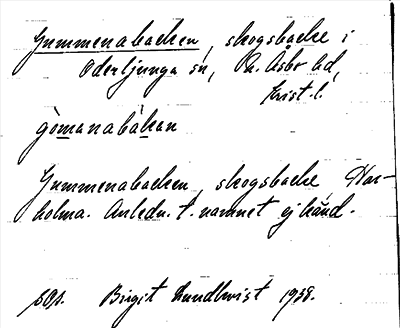 Gummenabacken, skogsbacke i
Oderljunga sn, N. Åsbo hd,
Krist. l.
gòmanabàkan
Gummenabacken, skogsbacke, Har-
holma. Anledn. t. namnet ej känd.
Birgit Lundkvist 1938.